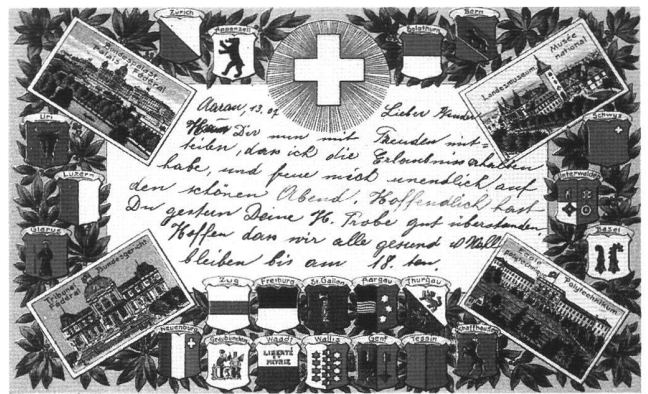 Zürich
Appenzell
Solothurn
Bern
Bundespalast
Palais Fédéral
Landesmuseum
Musée national
Uri
Luzern
Glarus
Schwyz
Unterwalden
Basel
Aarau, 13. 07 Lieber
Kann Dir nun mit Freuden mit=
teilen, dass ich die Erlaubniss erhalten
habe, und freue mich unendlich auf
den schönen Abend. Hoffendlich hast
Du gestern Deine H. Probe gut überstanden,
Hoffen das wir alle gesund &
bleiben bis am 18. ten.
Tribunal Fédéral
Bundesgericht
Ecole Polytechnique
Polytechnikum
Zug
Freiburg
St. Gallen
Aargau
Thurgau
Neuenburg
Graubünden
Waadt
LIBERTÉ
PATRIE
Wallis
Genf
Tessin
Schaffhausen